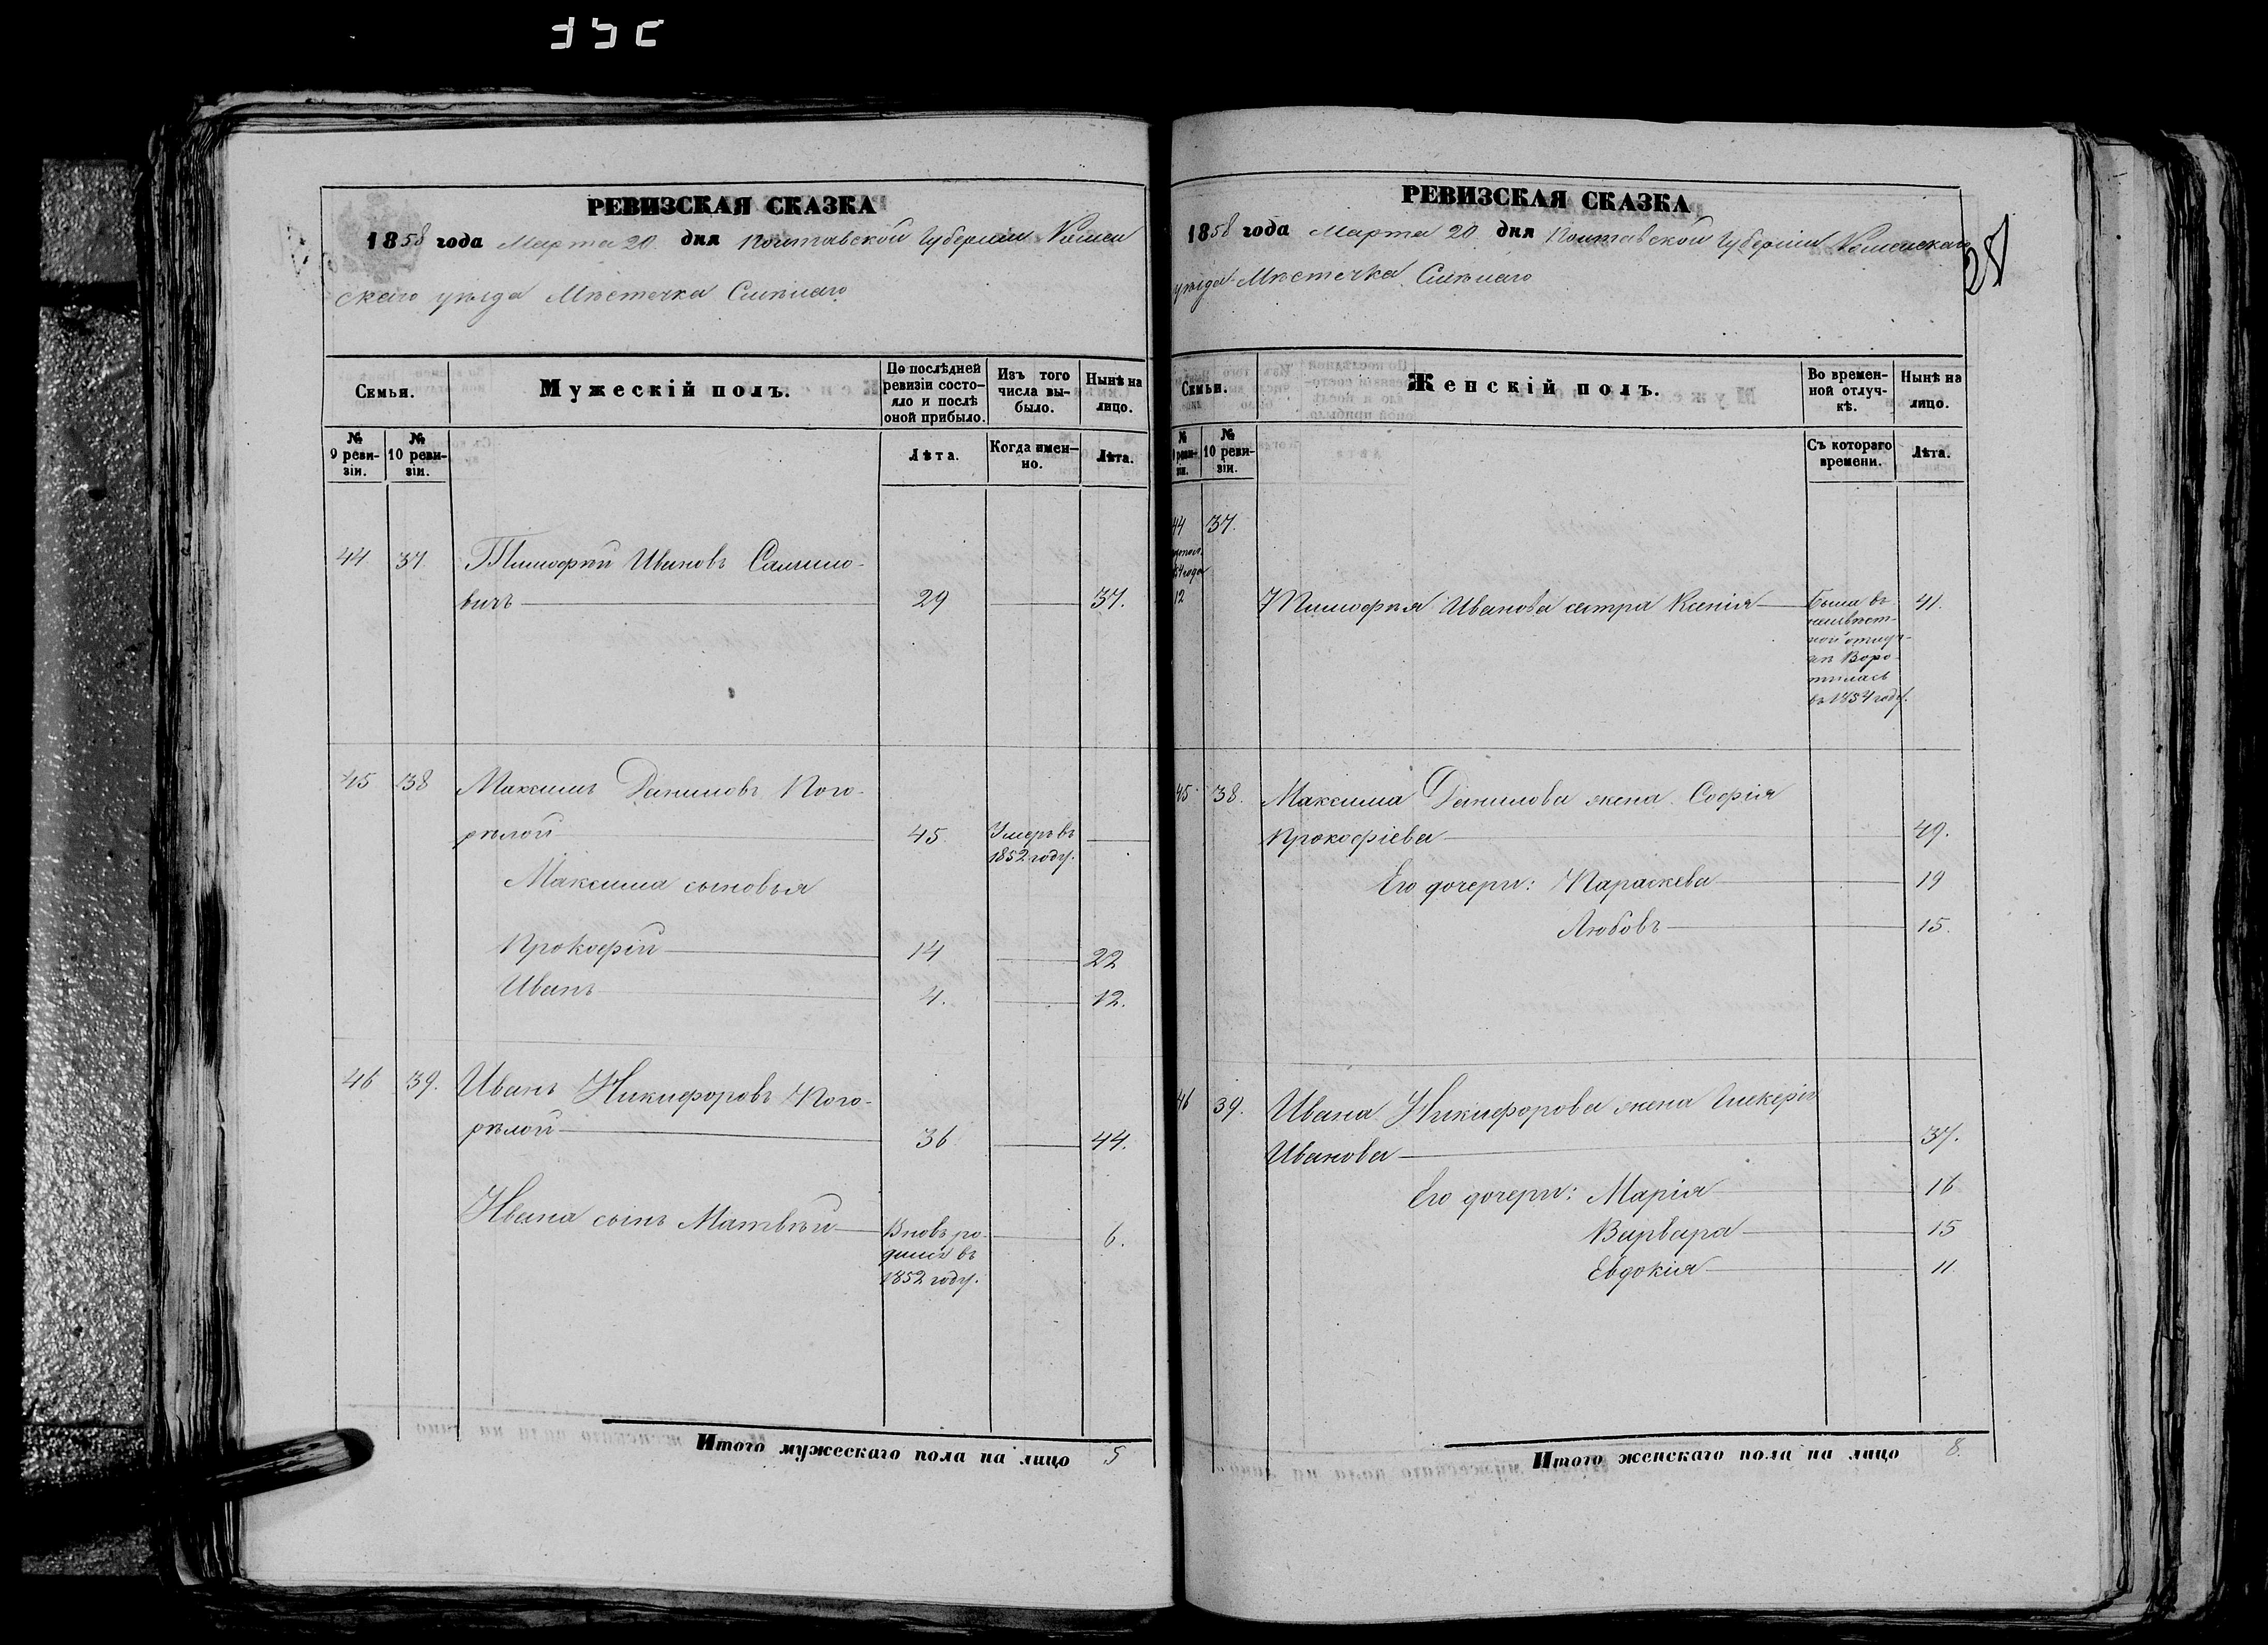 РЕВИЗСКАЯ СКАЗКА
1858 года Марта 20 дня Полтавской Губернии Ромен
скаго уѣзда Мѣстечка Смѣлаго
Семьи.
Мужескій полъ.
По послѣдней ревизіи состояло и послѣ оной прибыло.
Изъ того числа выбыло.
Нынѣ на лицо.
№ 9 ревизіи.
№ 10 ревизіи.
Лѣта.
Когда именно.
Лѣта.
44 37 Тимофей Ивановъ
вичъ 29 37.
45 38 Максимъ Даниловъ Пого-
рѣлой 45 Умеръ въ
1852 году.
Максима сыновья
Прокофій 14 22
Иванъ 4. 12.
46 39. Иванъ Никифоровъ Пого-
рѣлой 36 44.
Ивана сынъ Матвѣй Вновь ро- 6.
дился въ
1852 году.
Итого мужескаго пола на лицо 5
РЕВИЗСКАЯ СКАЗКА
1858 года Марта 20 дня Полтавской Губерніи Роменскаго
уѣзда Мѣстечка Смѣлаго
Семьи.
Женскій полъ.
Во временной отлучкѣ.
Нынѣ на лицо.
№ 9 ревизіи.
№ 10 ревизіи.
Съ котораго времени.
Лѣта.
44 37.
12 Тимофея Иванова сестра Ксенія Была въ 41.
неизвѣст-
ной отлуч-
кѣ Воро-
тилась
въ 1854 году.
45 38. Максима Данилова жена Софія
Прокофіева 49.
Его дочери: Параскева 19
Любовь 15.
46 39. Ивана Никифорова жена Гликерія
Иванова 37.
Его дочери: Марія 16
Варвара 15
Евдокія 11.
Итого женскаго пола на лицо 8.